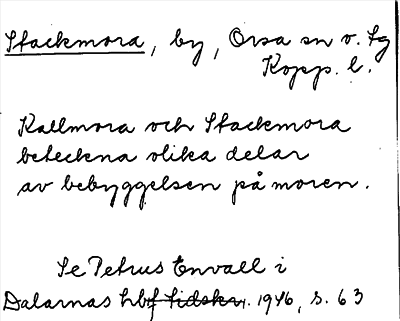 Stackmora, by, Orsa sn v. Lg
Kopp. l.
Kallmora och Stackmora
beteckna olika delar
av bebyggelsen på moren.
Se Petrus Envall i
Dalarnas hbf 1946, s. 63